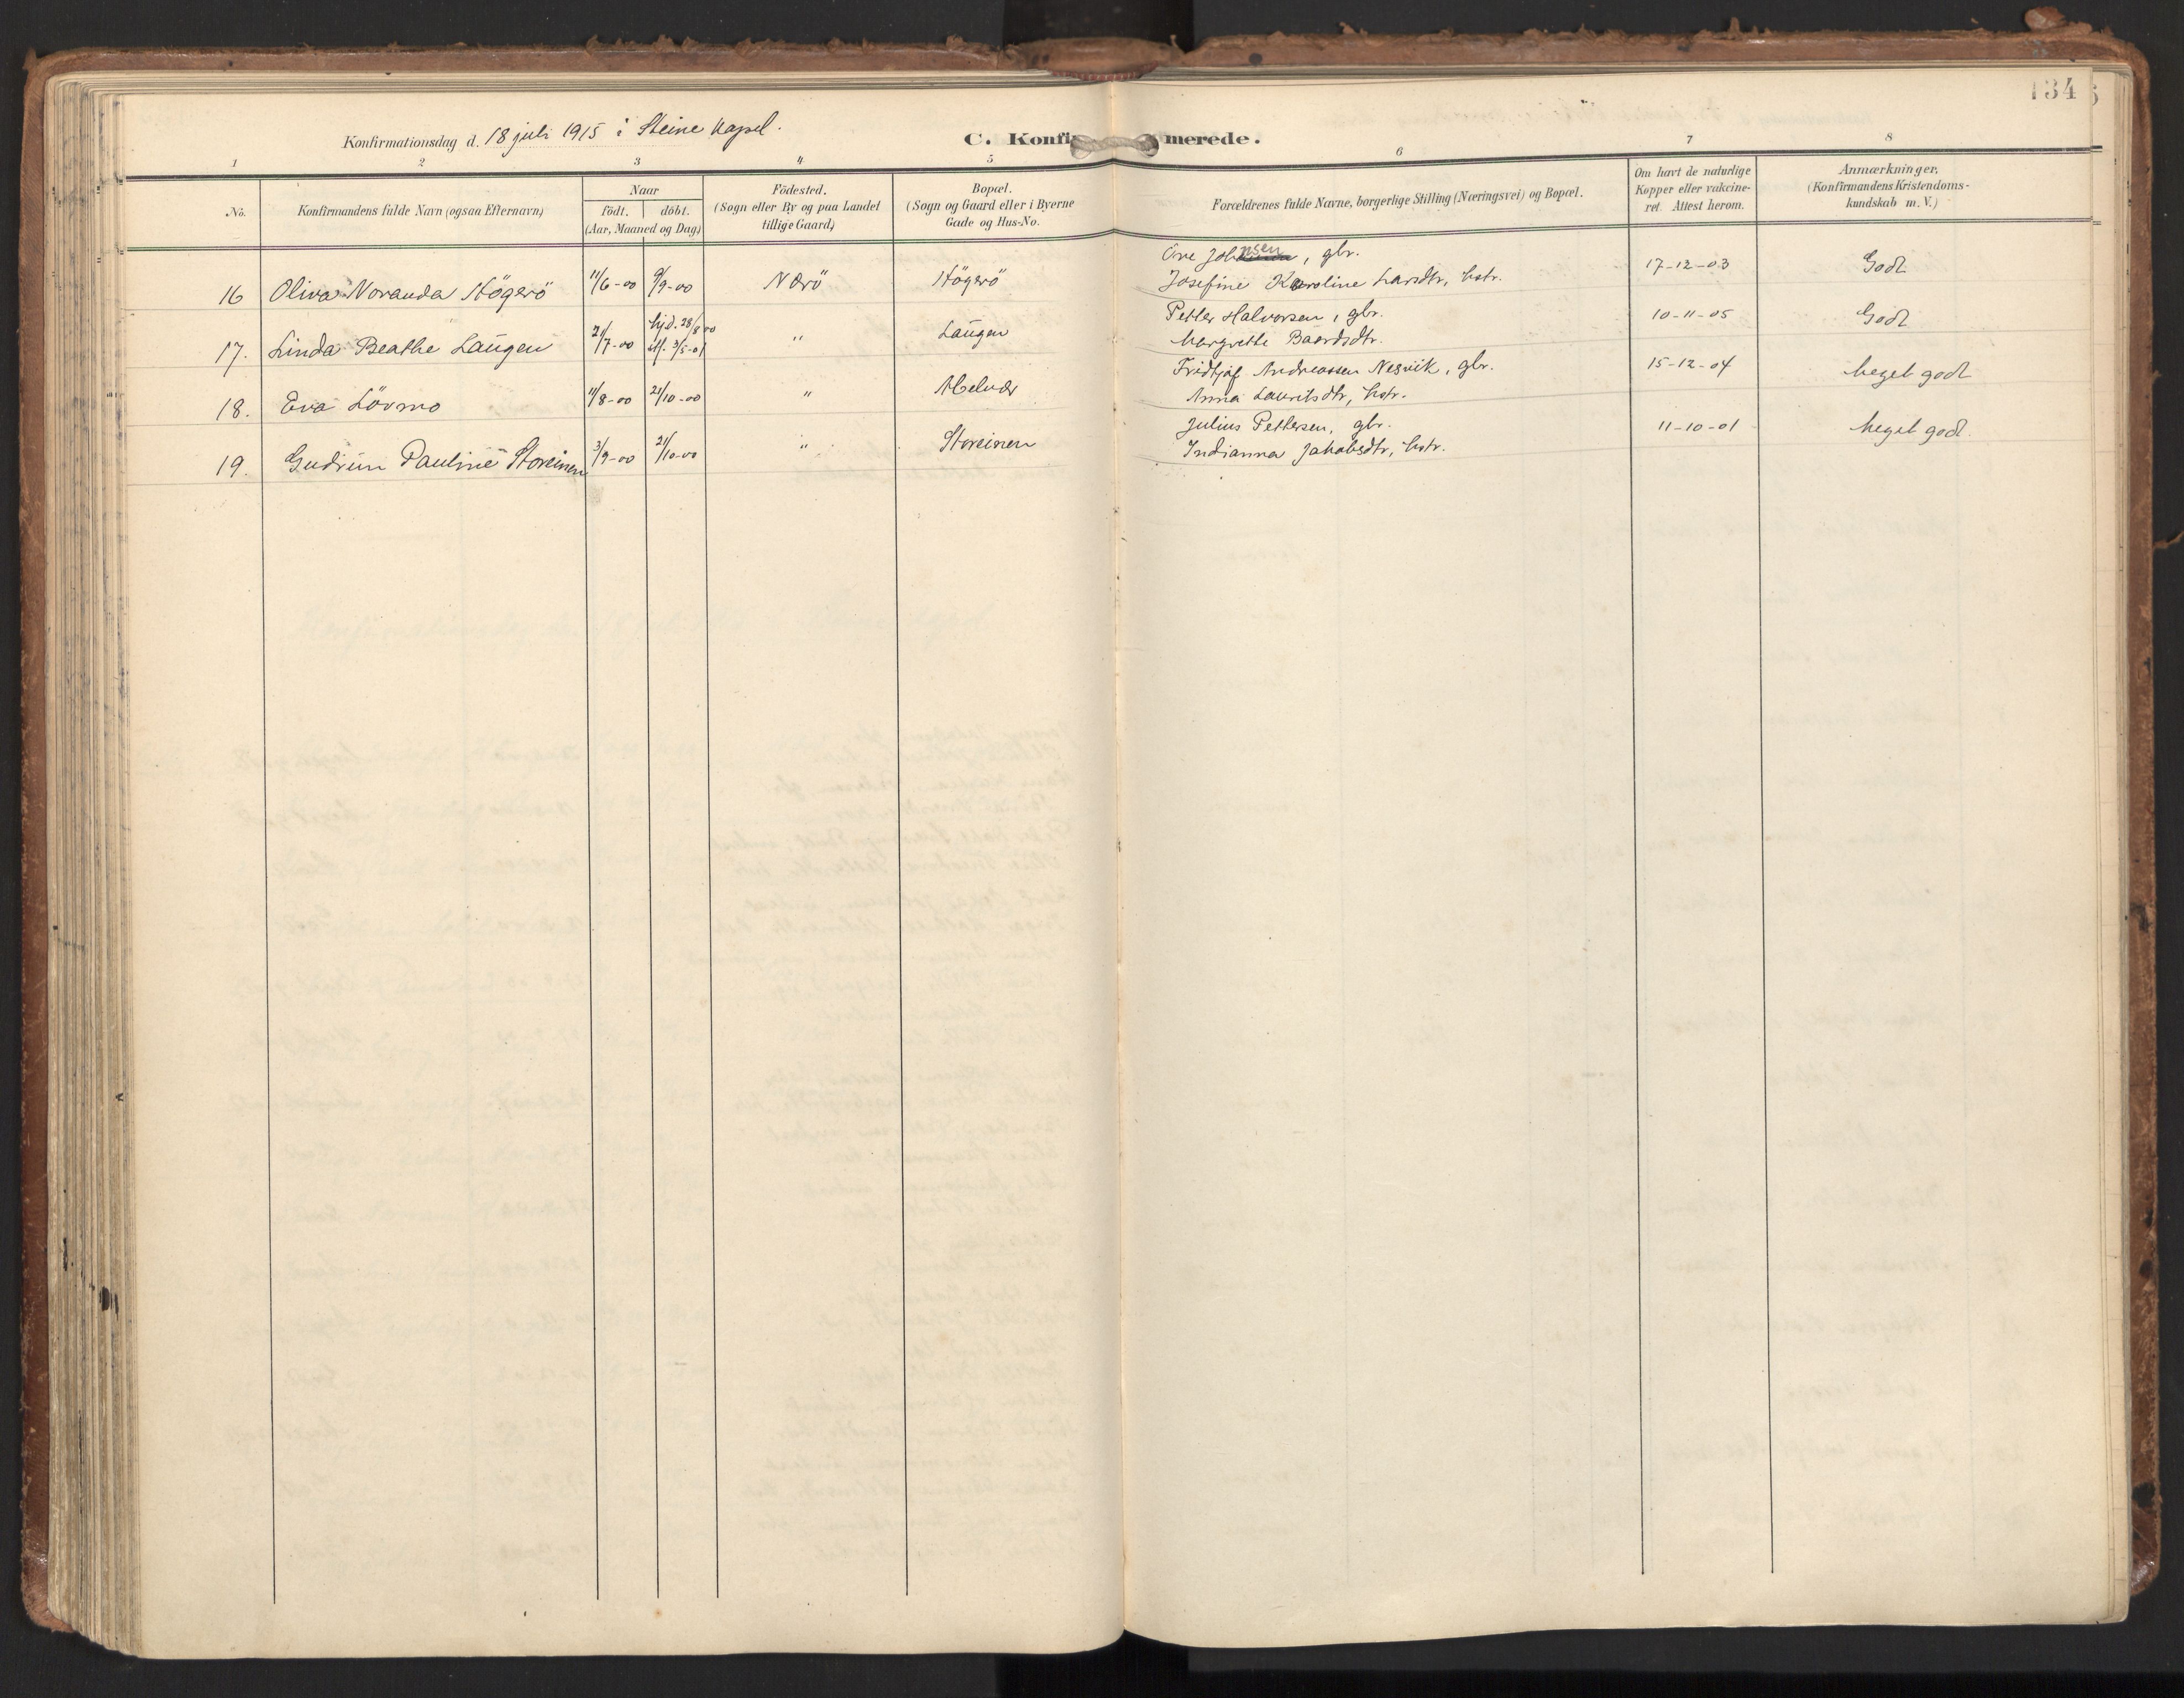 134
Konfirmationsdag d. 18 juli 1915 i Steine kapel.
C. Konfirmerede.
1 2 3 4 5 6 7 8
No. Konfirmandens fulde Navn (ogsaa Efternavn) Naar födt. döbt. (Aar, Maaned og Dag) Födested. (Sogn eller By og paa Landet tillige Gaard) Bopæl. (Sogn og Gaard eller i Byerne Gade og Hus-No. Forældrenes fulde Navne, borgerlige Stilling (Næringsvei) og Bopæl. Om havt de naturlige Kopper eller vakcineret. Attest herom. Anmærkninger, (Konfirmandens Kristendomskundskab m. V.)
Ove Johnsen, gbr.
16 Oliva Noranda Högerö 11/6-00 9/9-00 Nærö Högerö Josefine Karoline Larsdtr, hstr. 17-12-03 Godt
Petter Halvorsen, gbr.
17. Linda Beathe Laugen 21/7-00 hjd. 28/8 00 stf. 3/5-01 " Laugen Margrethe Baardsdtr. 10-11-05 Godt
Fridtjof Andreassen Nesvik, gbr.
18. Eva Lövmo 11/8-00 21/10-00 " Abelvær Anna Lauritsdtr, hstr. 15-12-04 Meget godt
Julius Pettersen, gbr.
19. Gudrun Pauline Storeinen 3/9-00 21/10-00 " Storeinen Indianna Jakobsdtr, hstr. 11-10-01 Meget godt.